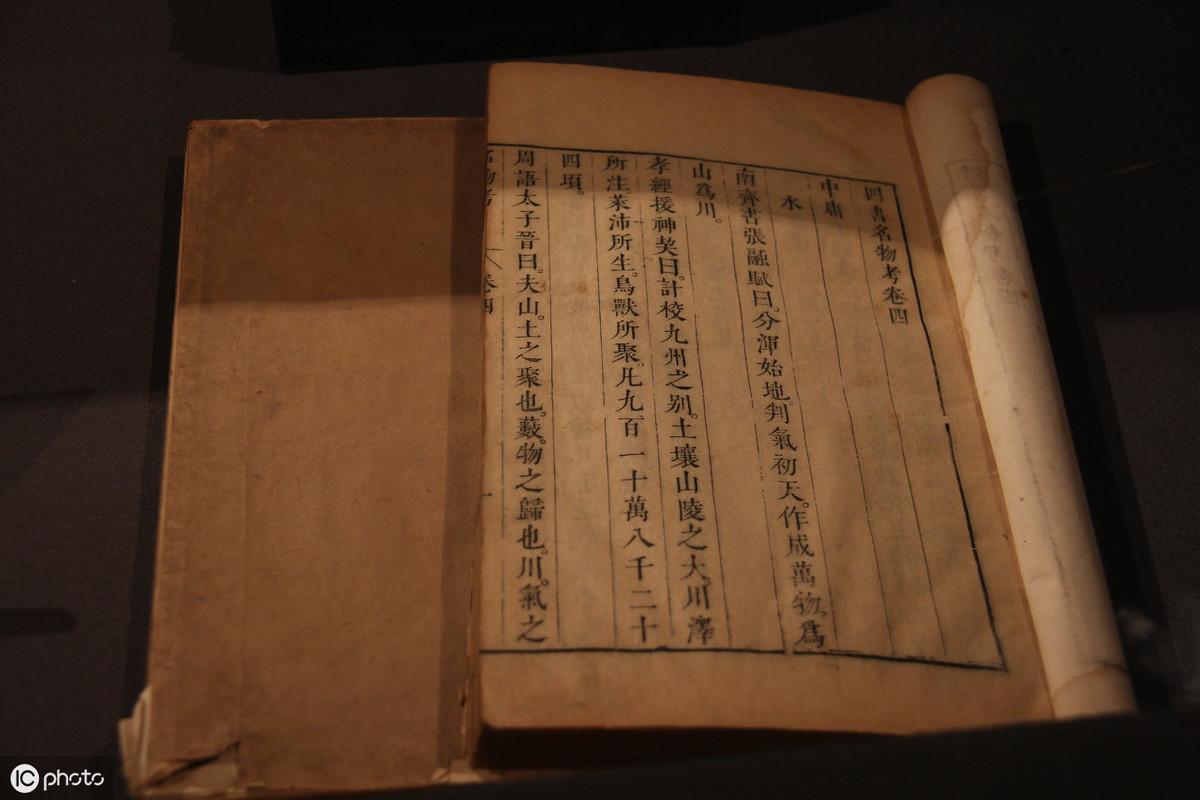 四書名物考卷四
中庸
水
南齊書張融賦曰。分渾始地。判氣初天。作成萬物。爲
山爲川。
孝經援神契曰。計校九州之别。土壤山陵之大。川澤
所注。萊沛所生。鳥獸所聚。凡九百一十萬八千二十
四頃。
周語太子晉曰。夫山。土之聚也。藪。物之歸也。川。氣之
名物考 卷四 一
IC photo